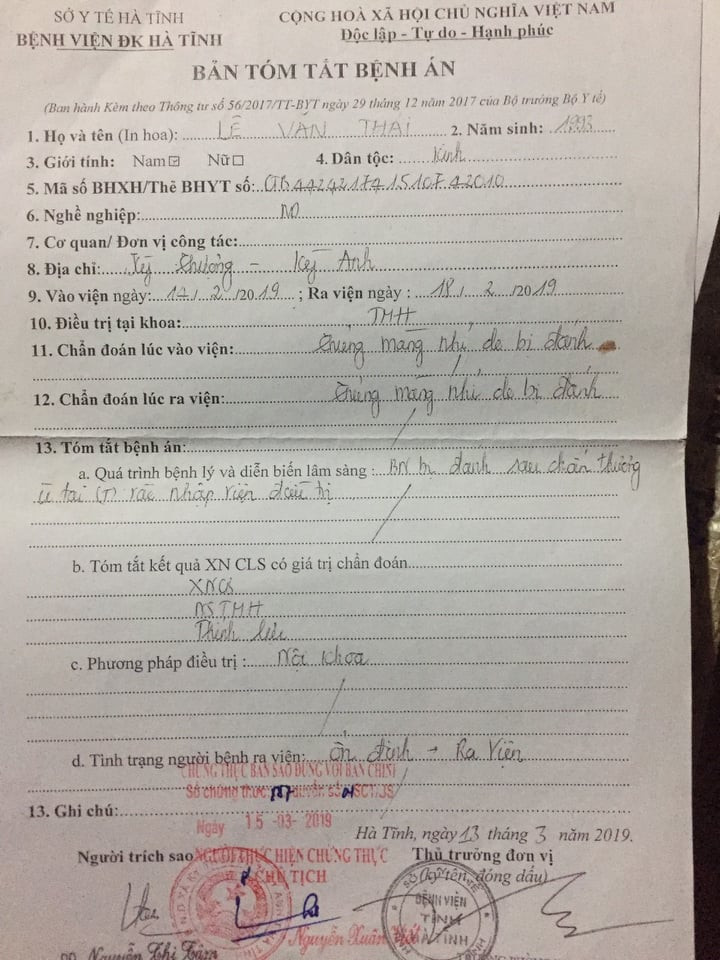 SỞ Y TẾ HÀ TĨNH
BỆNH VIỆN ĐK HÀ TĨNH
CỘNG HOÀ XÃ HỘI CHỦ NGHĨA VIỆT NAM
Độc lập - Tự do - Hạnh phúc
BẢN TÓM TẮT BỆNH ÁN
(Ban hành Kèm theo Thông tư số 56/2017/TT-BYT ngày 29 tháng 12 năm 2017 của Bộ trưởng Bộ Y tế)
1. Họ và tên (In hoa): LÊ VĂN THÁI 2. Năm sinh: 1993
3. Giới tính: Nam☑ Nữ☐ 4. Dân tộc: Kinh
5. Mã số BHXH/Thẻ BHYT số:
6. Nghề nghiệp:
7. Cơ quan/ Đơn vị công tác:
8. Địa chỉ: Kỳ - Kỳ Anh
9. Vào viện ngày: 17 / 2 /2019 ; Ra viện ngày : 18 / 2 /2019
10. Điều trị tại khoa: TMH
11. Chẩn đoán lúc vào viện: Thủng màng nhĩ do bị đánh
12. Chẩn đoán lúc ra viện: Thủng màng nhĩ do bị đánh
13. Tóm tắt bệnh án:
a. Quá trình bệnh lý và diễn biến lâm sàng : BN bị đánh sau chấn thương
ù tai (T) nhập viện điều trị
b. Tóm tắt kết quả XN CLS có giá trị chẩn đoán
XNCB
NSTMH
Thính lực
c. Phương pháp điều trị : Nội khoa
d. Tình trạng người bệnh ra viện: Ổn định → Ra viện
CHỨNG THỰC BẢN SAO ĐÚNG VỚI BẢN CHÍNH
Số chứng thực quyển số SCT/JS
13. Ghi chú:
Ngày 15 -03- 2019
Hà Tĩnh, ngày 13 tháng 3 năm 2019.
Người trích sao NGƯỜI THỰC HIỆN CHỨNG THỰC Thủ trưởng đơn vị
CHỦ TỊCH (ký tên, đóng dấu)
BỆNH VIỆN
TỈNH
HÀ TĨNH
Nguyễn Xuân
Nguyễn Thị Tâm